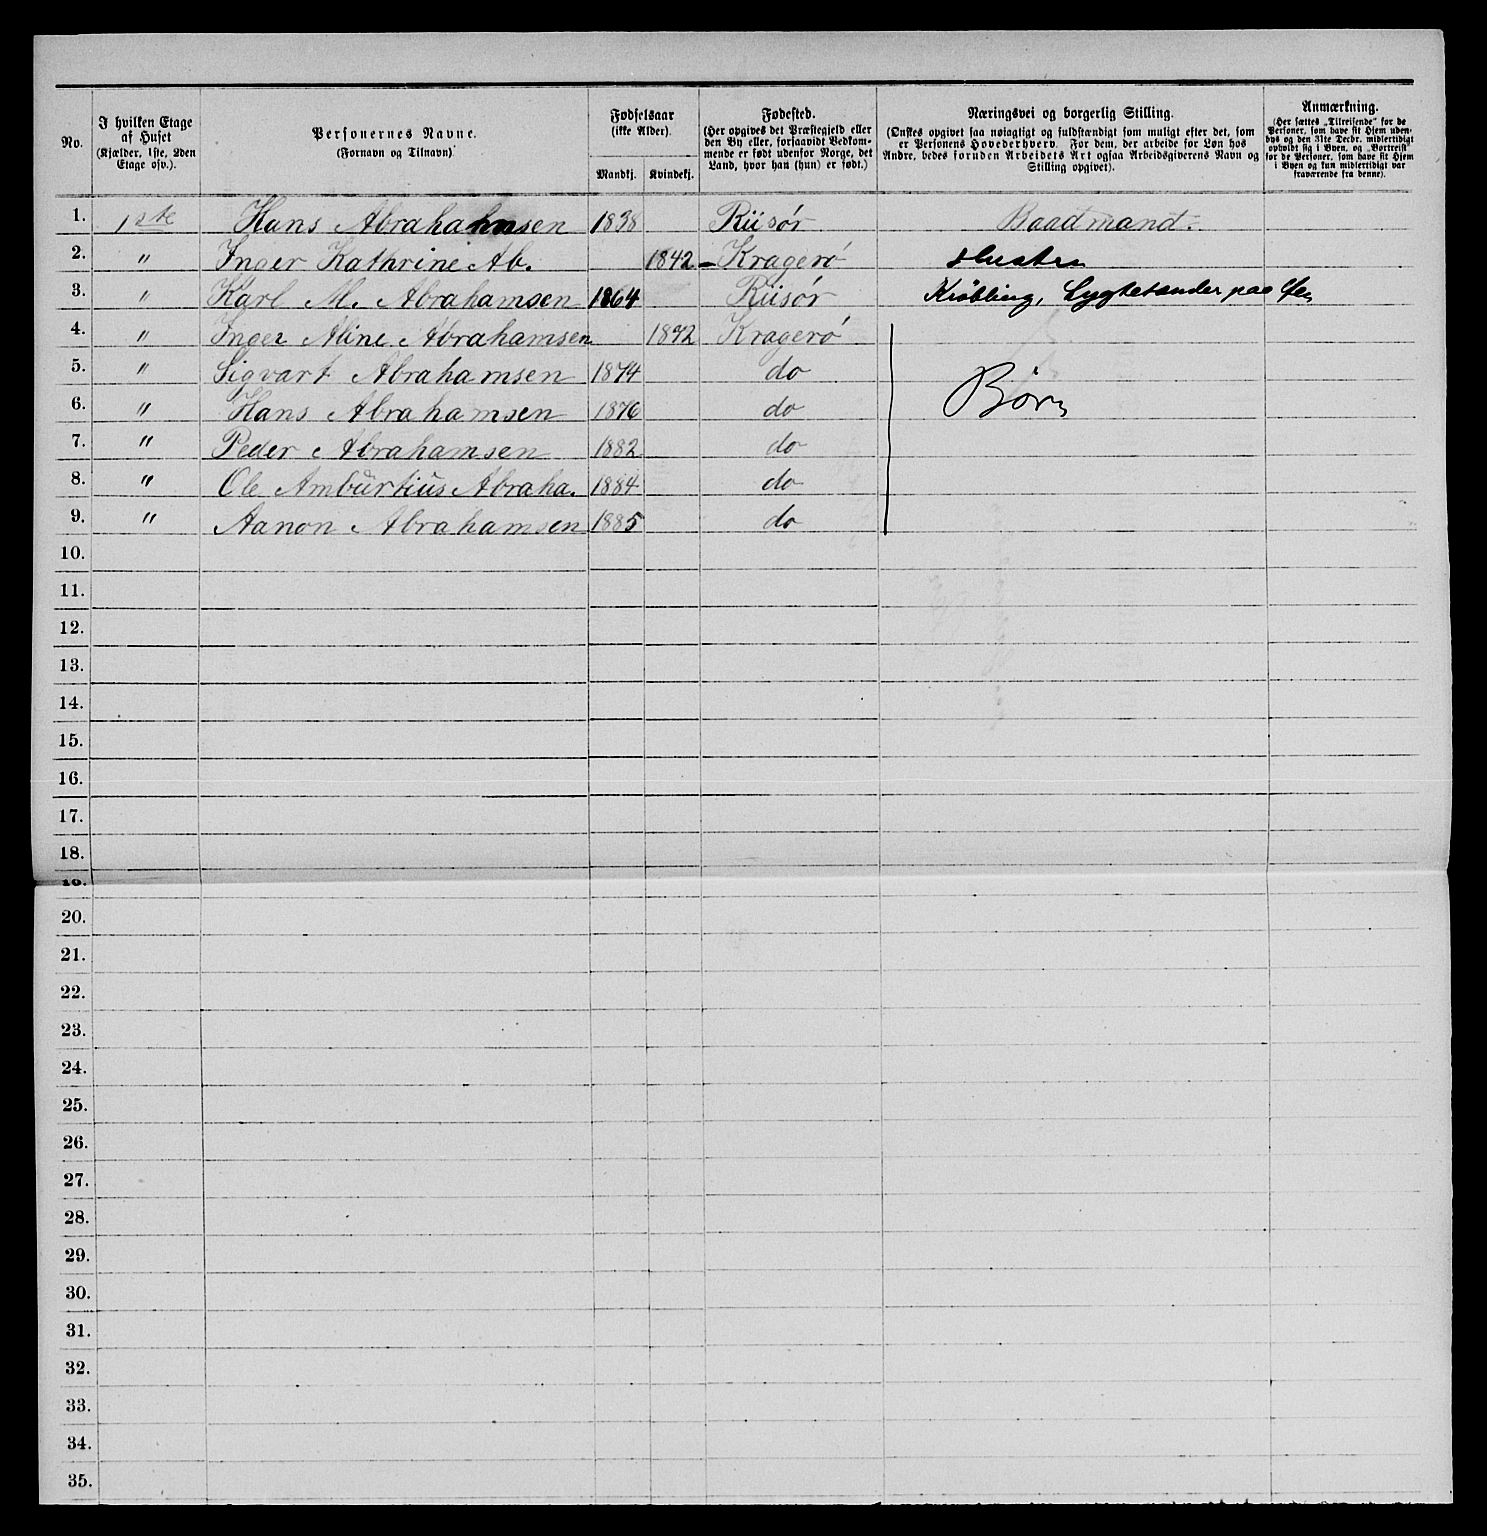 No.
I hvilken Etage af Huset (Kjælder, 1ste, 2den Etage osv.).
Personernes Navne. (Fornavn og Tilnavn)
Fødselsaar (ikke Alder).
Mandkj. Kvindekj.
Fødested. (Her opgives det Præstegjeld eller den By eller, forsaavidt Vedkommende er født udenfor Norge, det Land, hvor han (hun) er født.)
Næringsvei og borgerlig Stilling. (Ønskes opgivet saa nøiagtigt og fuldstændigt som muligt efter det, som er Personens Hovederhverv. For dem, der arbeide for Løn hos Andre, bedes foruden Arbeidets Art ogsaa Arbeidsgiverens Navn og Stilling opgivet).
Anmærkning. (Her sættes „Tilreisende“ for de Personer, som have sit Hjem udenbys og den 31te Decbr. midlertidigt opholdt sig i Byen, og „Bortreist“ for de Personer, som have sit Hjem i Byen og kun midlertidigt var fraværende fra denne).
1. 1ste Hans Abrahamsen 1838 Riisór Baadmand.
2. " Inger Kathrine Ab. 1842 Kragerø Hustru
3. " Karl M. Abrahamsen 1864 Riisór Krøbling, Lygtetænder paa
4. " Inger Aline Abrahamsen Kragerø
5. " Sigvart Abrahamsen 1874 do
6. " Hans Abrahamsen 1876 do Børn
7. " Peder Abrahamsen 1882 do
8. " Ole Ambŭrtiŭs Abraha. 1884 do
9. " Aanon Abrahamsen 1885 do
10.
11.
12.
13.
14.
15.
16.
17.
18.
19.
20.
21.
22.
23.
24.
25.
26.
27.
28.
29.
30.
31.
32.
33.
34.
35.